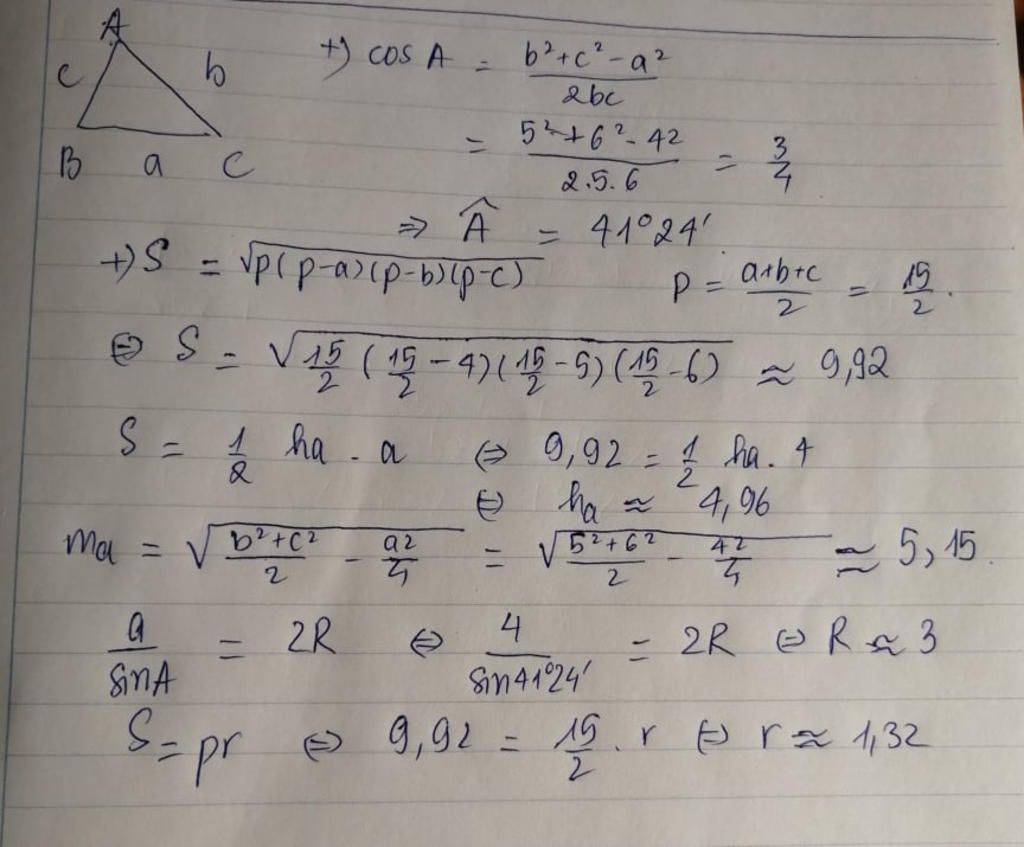 A
c b
B a C
+) cos A = (b² + c² - a²) / 2bc
= (5² + 6² - 4²) / 2.5.6 = 3/4
⇒ Â = 41°24'
+) S = √(p(p-a)(p-b)(p-c)) p = (a+b+c)/2 = 15/2.
⇔ S = √(15/2 (15/2 - 4)(15/2 - 5)(15/2 - 6)) ≈ 9,92
S = 1/2 ha . a ⇔ 9,92 = 1/2 ha. 4
⇔ ha ≈ 4,96
ma = √((b² + c²)/2 - a²/4) = √((5² + 6²)/2 - 4²/4) ≈ 5,15.
a/sinA = 2R ⇔ 4/sin41°24' = 2R ⇔ R ≈ 3
S = pr ⇔ 9,92 = 15/2 . r ⇔ r ≈ 1,32